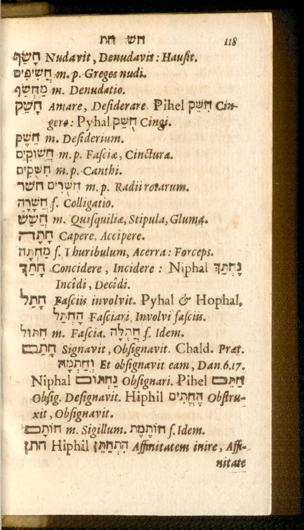 חש חת 118
חָשַׂף Nudavit, Denudavit: Hausit.
חֲשִׂיפִים m. p. Greges nudi.
מַחְשֹׂף m. Denudatio.
חָשַׁק Amare, Desiderare. Pihel חִשֵּׁק Cin-
gere: Pyhal חֻשַּׁק Cingi.
חֵשֶׁק m. Desiderium.
חֲשׁוּקִים m. p. Fasciæ, Cinctura.
חִשֻּׁקִים m. p. Canthi.
חשר חִשֻּׁרִים m. p. Radii rotarum.
חַשְׁרָה f. Colligatio.
חָשַׁשׁ m. Quisquiliæ, Stipula, Gluma.
חָתָה Capere, Accipere.
מַחְתָּה f. Thuribulum, Acerra: Forceps.
חָתַךְ Concidere, Incidere: Niphal נֶחְתַּךְ
Incîdi, Decîdi.
חָתַל Fasciis involvit. Pyhal & Hophal,
הָחְתַּל Fasciari, Involvi fasciis.
חִתּוּל m. Fascia. חֲתֻלָּה f. Idem.
חָתַם Signavit, Obsignavit. Chald. Præt.
וְחַתְמַהּ Et obsignavit eam, Dan. 6. 17.
Niphal נֶחְתּוֹם Obsignari. Pihel חִתֵּם
Obsig. Designavit. Hiphil הֶחְתִּים Obstru-
xit, Obsignavit.
חוֹתָם m. Sigillum. חוֹתֶמֶת f. Idem.
חתן Hiphil הִתְחַתֵּן Affinitatem inire, Affi-
nitate